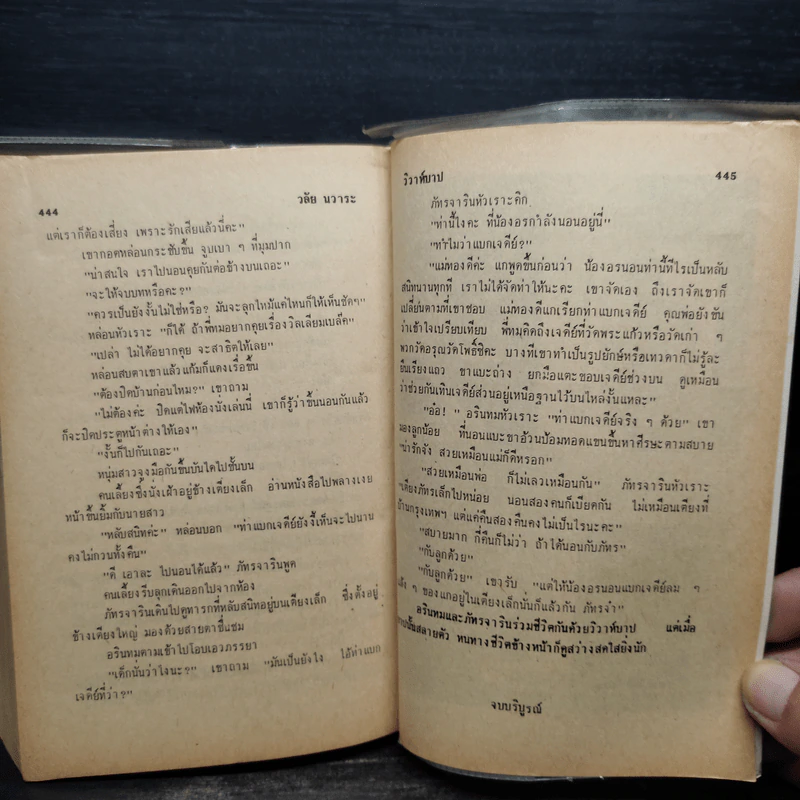 444
วลัย นวาระ
แต่เราก็ต้องเสี่ยง เพราะรักเสียแล้วนี่คะ"
เขากอดหล่อนกระชับขึ้น จูบเบา ๆ ที่มุมปาก
"น่าสนใจ เราไปนอนคุยกันต่อข้างบนเถอะ"
"จะให้จบบทหรือคะ?"
"ควรเป็นยังงั้นไม่ใช่หรือ? มันจะลุกไหม้แค่ไหนก็ให้เห็นชัดๆ"
หล่อนหัวเราะ "ก็ได้ ถ้าพี่หมอยากคุยเรื่องวิลเลียมเบล็ค"
"เปล่า ไม่ได้อยากคุย จะสาธิตให้เลย"
หล่อนสบตาเขาแล้วแก้มก็แดงเรื่อขึ้น
"ต้องปิดบ้านก่อนไหม?" เขาถาม
"ไม่ต้องค่ะ ปิดแต่ไฟห้องนั่งเล่นนี่ เขาก็รู้ว่าขึ้นนอนกันแล้ว
ก็จะปิดประตูหน้าต่างให้เอง"
"งั้นก็ไปกันเถอะ"
หนุ่มสาวจูงมือกันขึ้นบันไดไปชั้นบน
คนเลี้ยงซึ่งนั่งเฝ้าอยู่ข้างเตียงเล็ก อ่านหนังสือไปพลางเงย
หน้าขึ้นยิ้มกับนายสาว
"หลับสนิทค่ะ" หล่อนบอก "ท่าแบกเจดีย์ยังงี้เห็นจะไปนาน
คงไม่กวนทั้งคืน"
"ดี เอาละ ไปนอนได้แล้ว" ภัทรจารินพูด
คนเลี้ยงรีบลุกเดินออกไปจากห้อง
ภัทรจารินเดินไปดูทารกที่หลับสนิทอยู่บนเตียงเล็ก ซึ่งตั้งอยู่
ข้างเตียงใหญ่ มองด้วยสายตาชื่นชม
อรินทมตามเข้าไปโอบเอวภรรยา
"เด็กนั่นว่าไงนะ?" เขาถาม "มันเป็นยังไง ไอ้ท่าแบก
เจดีย์ที่ว่า?"
วิวาห์บาป
445
ภัทรจารินหัวเราะคิก
"ท่านี้ไงคะ ที่น้องอรกำลังนอนอยู่นี่"
"ทำไมว่าแบกเจดีย์?"
"แม่ทองดีค่ะ แกพูดขึ้นก่อนว่า น้องอรนอนท่านี้ทีไรเป็นหลับ
สนิทนานทุกที เราไม่ได้จัดทำให้นะคะ เขาจัดเอง ถึงเราจัดเขาก็
เปลี่ยนตามที่เขาชอบ แม่ทองดีแกเรียกท่าแบกเจดีย์ คุณพ่อยังขัน
ว่าเข้าใจเปรียบเทียบ พี่หมุคิดถึงเจดีย์ที่วัดพระแก้วหรือวัดเก่า ๆ
พวกวัดอรุณวัดโพธิ์ซิคะ บางทีเขาทำเป็นรูปยักษ์หรือเทวดาก็ไม่รู้ละ
ยืนเรียงแถว ขาแบะถ่าง ยกมือแตะขอบเจดีย์ช่วงบน ดูเหมือน
ว่าช่วยกันเทินเจดีย์ส่วนอยู่เหนือฐานไว้บนไหล่งั้นแหละ"
"อ๋อ!" อรินทมหัวเราะ "ท่าแบกเจดีย์จริง ๆ ด้วย" เขา
มองลูกน้อย ที่นอนแบะขาอ้วนป้อมทอดแขนขึ้นหาศีรษะตามสบาย
"น่ารักจัง สวยเหมือนแม่ก็ดีหรอก"
"สวยเหมือนพ่อ ก็ไม่เลวเหมือนกัน" ภัทรจารินหัวเราะ
"เตียงภัทรเล็กไปหน่อย นอนสองคนก็เบียดกัน ไม่เหมือนเตียงที่
บ้านกรุงเทพฯ แต่แค่คืนสองคืนคงไม่เป็นไรนะคะ"
"สบายมาก กี่คืนก็ไม่ว่า ถ้าได้นอนกับภัทร"
"กับลูกด้วย"
"กับลูกด้วย" เขารับ "แต่ให้น้องอรนอนแบกเจดีย์ลม ๆ
แล้ง ๆ ของแกอยู่ในเตียงเล็กนั่นก็แล้วกัน ภัทรจ๋า"
อรินทมและภัทรจารินร่วมชีวิตกันด้วยวิวาห์บาป แต่เมื่อ
บาปนั้นสลายตัว หนทางชีวิตข้างหน้าก็ดูสว่างสดใสยิ่งนัก
จบบริบูรณ์